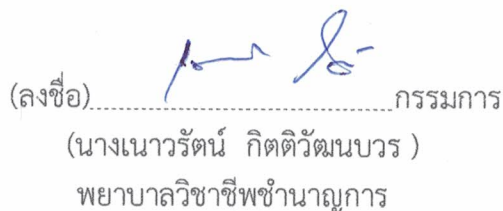 (ลงชื่อ)............................................กรรมการ
(นางเนาวรัตน์ กิตติวัฒนบวร )
พยาบาลวิชาชีพชำนาญการ